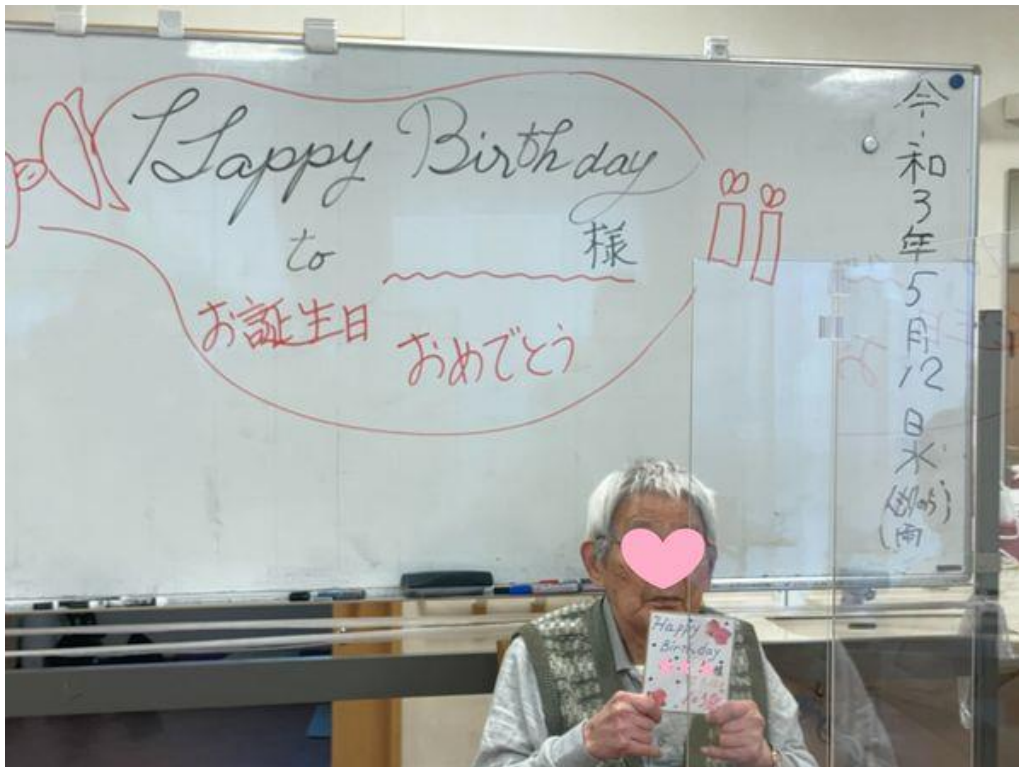 Happy Birthday
to 様
お誕生日
おめでとう
令和3年5月12日水
雨
Happy
Birthday
様